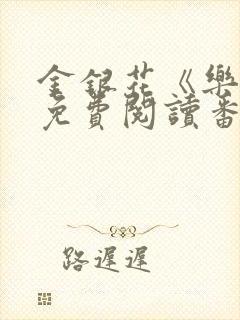 金銀花《樂
免費閱讀番
路遲遲